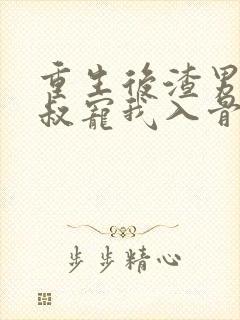 重生後渣男
叔寵我入骨
步步精心